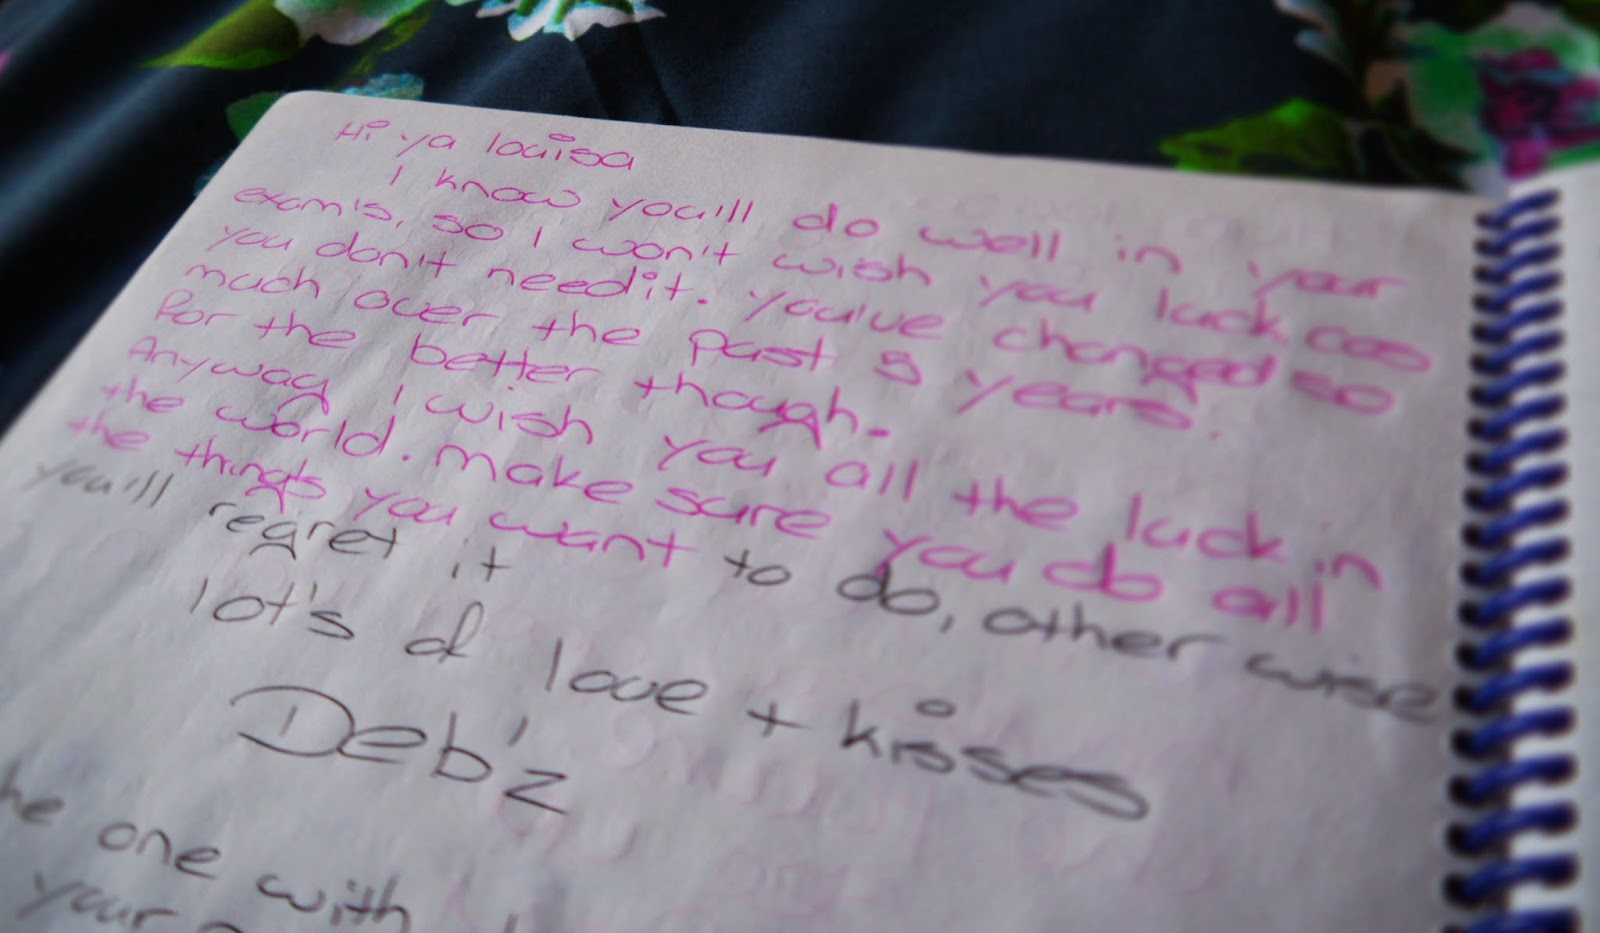 Hi ya louisa
I know you'll do well in your
exam's, so I won't wish you luck, cos
you don't needit. you've changed so
much over the past 5 years.
for the better though.
Anyway I wish you all the luck in
the world. make sure you do all
the thing's you want to do, other wise
you'll regret it
lot's of love + kisses
Deb'z
one with
your